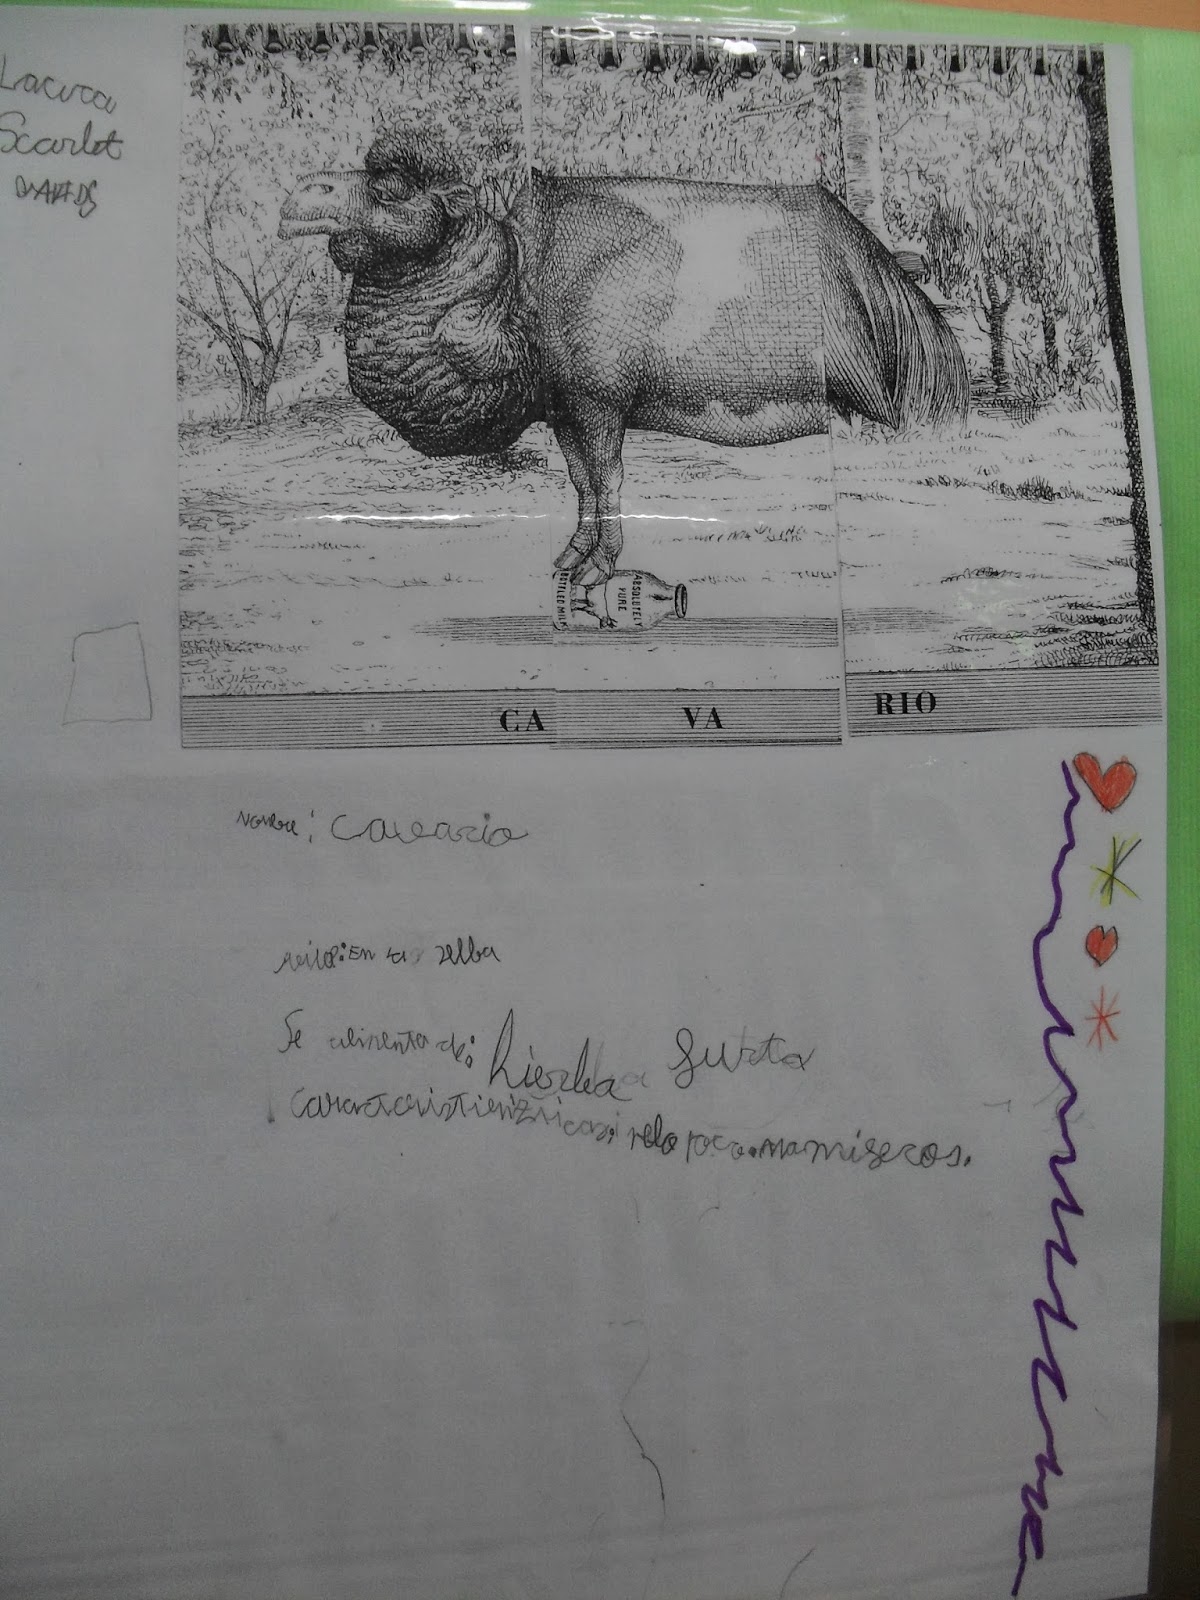 Scarlet
BOTTLED MILK
ABSOLUTELY
PURE
CA VA RIO
nombre: Cavario
vive: En la selba
Se alimenta de: hierba fruta
pelo poco. mamiseros.